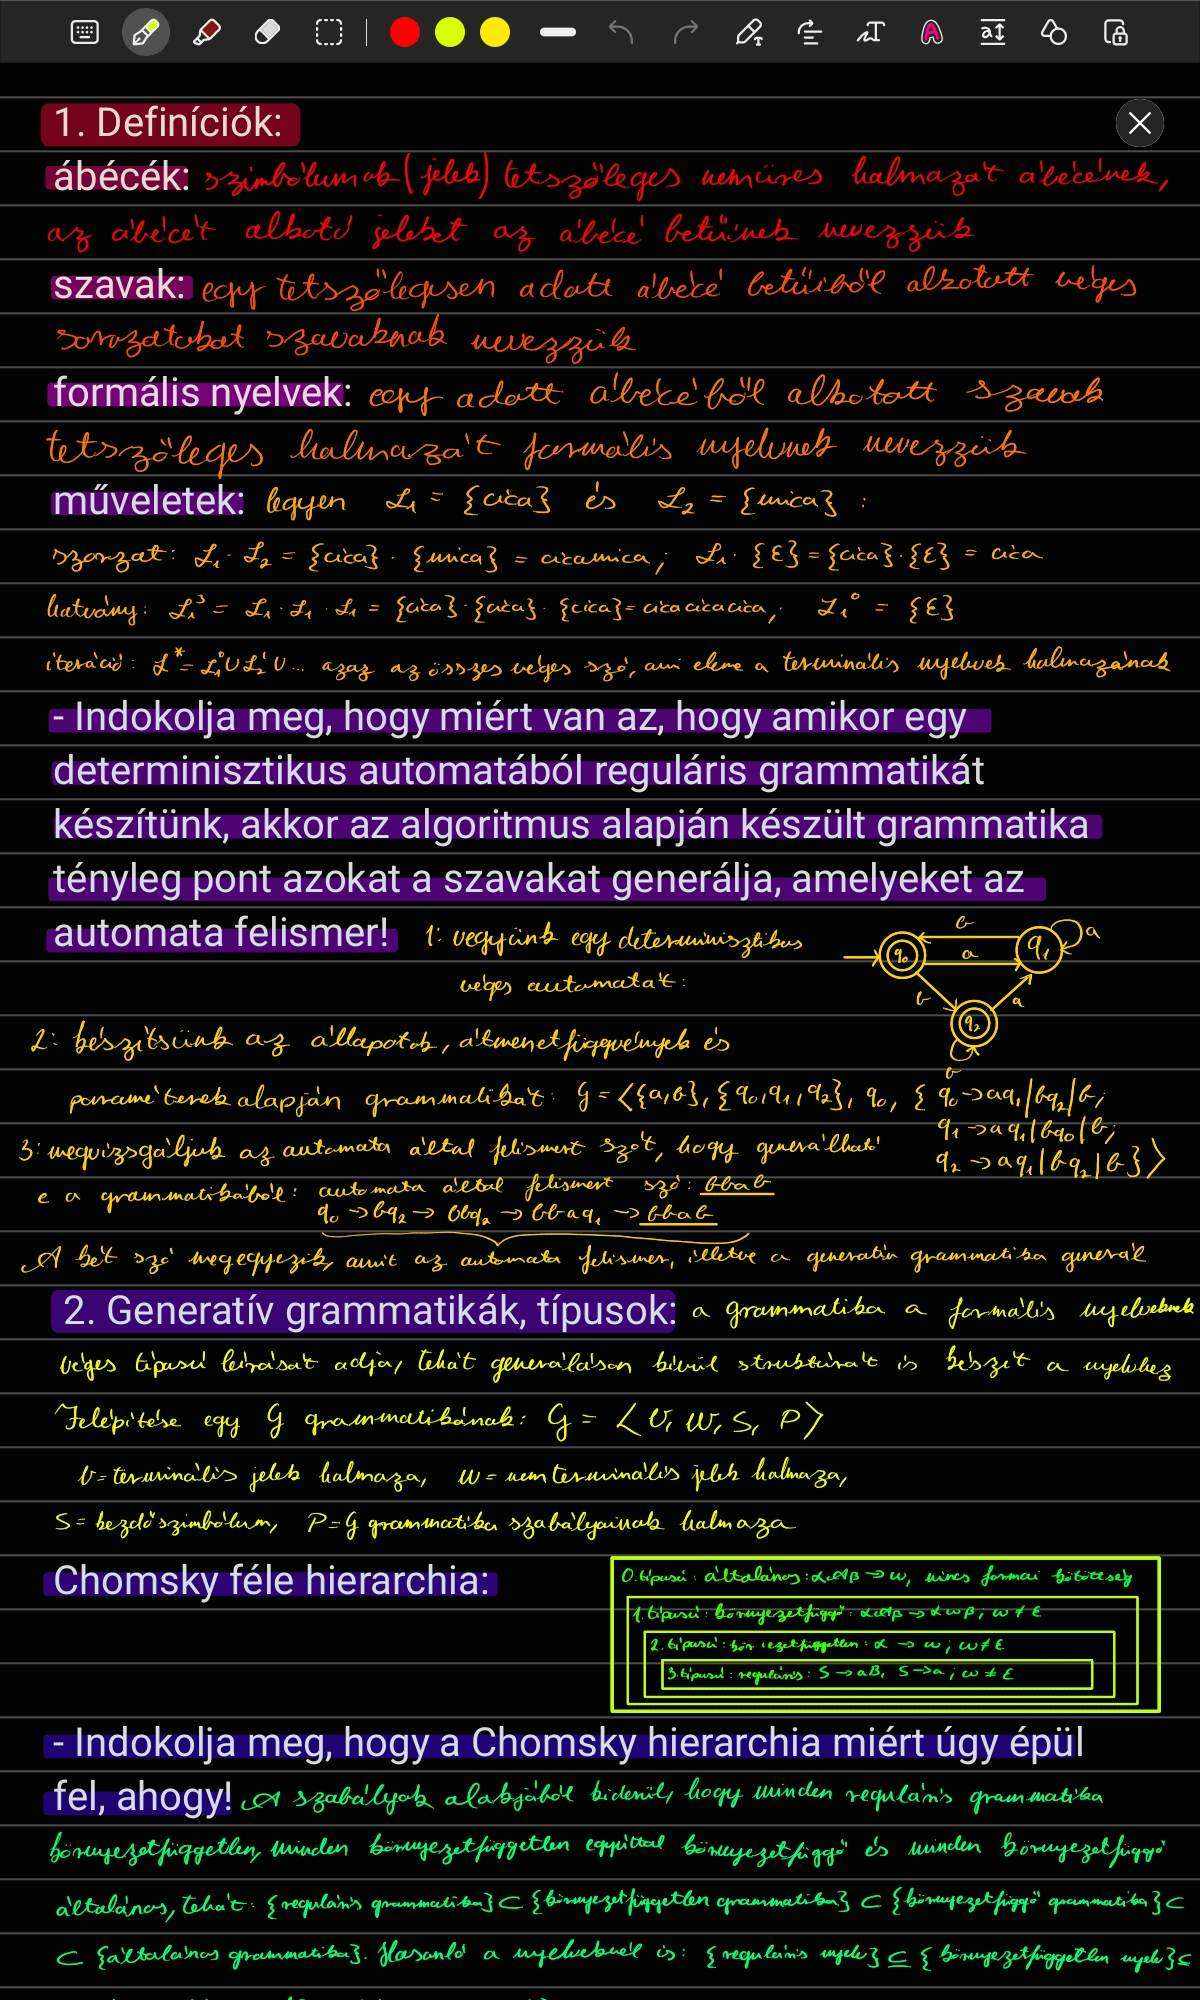 1. Definíciók:
ábécék: szimbólumok (jelek) tetszőleges nemüres halmazát ábécének,
az ábécét alkotó jeleket az ábécé betűinek nevezzük
szavak: egy tetszőlegesen adott ábécé betűiből alkotott véges
sorozatokat szavaknak nevezzük
formális nyelvek: egy adott ábécéből alkotott szavak
tetszőleges halmazát formális nyelvnek nevezzük
műveletek: legyen L₁ = {cica} és L₂ = {unica} :
szorzat: L₁ · L₂ = {cica} · {unica} = cicaunica; L₁ · {ε} = {cica} · {ε} = cica
hatvány: L₁³ = L₁ · L₁ · L₁ = {cica} · {cica} · {cica} = cicacicacica; L₁⁰ = {ε}
iteráció: L* = L₁⁰ ∪ L₂¹ ∪ ... azaz az összes véges szó, ami eleme a terminális nyelvek halmazának
- Indokolja meg, hogy miért van az, hogy amikor egy
determinisztikus automatából reguláris grammatikát
készítünk, akkor az algoritmus alapján készült grammatika
tényleg pont azokat a szavakat generálja, amelyeket az
automata felismer! 1: vegyünk egy determinisztikus
véges automatát:
q₀ b a q₁ a
b q₂ a
b
2: készítsünk az állapotok, átmenetfüggvények és
paraméterek alapján grammatikát: G = ⟨{a,b}, {q₀,q₁,q₂}, q₀, { q₀ → aq₁ | bq₂ | b;
q₁ → aq₁ | bq₀ | b;
q₂ → aq₁ | bq₂ | b } ⟩
3: megvizsgáljuk az automata által felismert szót, hogy generálható
e a grammatikából: automata által felismert szó: bbab
q₀ → bq₂ → bbq₂ → bbaq₁ → bbab
A két szó megegyezik, amit az automata felismer, illetve a generatív grammatika generál
2. Generatív grammatikák, típusok: a grammatika a formális nyelveknek
véges típusú leírását adja, tehát generáláson kívül struktúrát is készít a nyelvhez
Felépítése egy G grammatikának: G = ⟨V, W, S, P⟩
V = terminális jelek halmaza, W = nemterminális jelek halmaza,
S = kezdőszimbólum, P = G grammatika szabályainak halmaza
Chomsky féle hierarchia:
0. típusú: általános: αAβ → ω, nincs formai kötöttség
1. típusú: környezetfüggő: αAβ → αωβ, ω ≠ ε
2. típusú: környezetfüggetlen: α → ω; ω ≠ ε
3. típusú: reguláris: S → aB, S → a; ω ≠ ε
- Indokolja meg, hogy a Chomsky hierarchia miért úgy épül
fel, ahogy! A szabályok alakjából kiderül, hogy minden reguláris grammatika
környezetfüggetlen, minden környezetfüggetlen egyúttal környezetfüggő és minden környezetfüggő
általános, tehát: {reguláris grammatika} ⊂ {környezetfüggetlen grammatika} ⊂ {környezetfüggő grammatika} ⊂
⊂ {általános grammatika}. Hasonló a nyelveknél is: {reguláris nyelv} ⊆ {környezetfüggetlen nyelv} ⊆